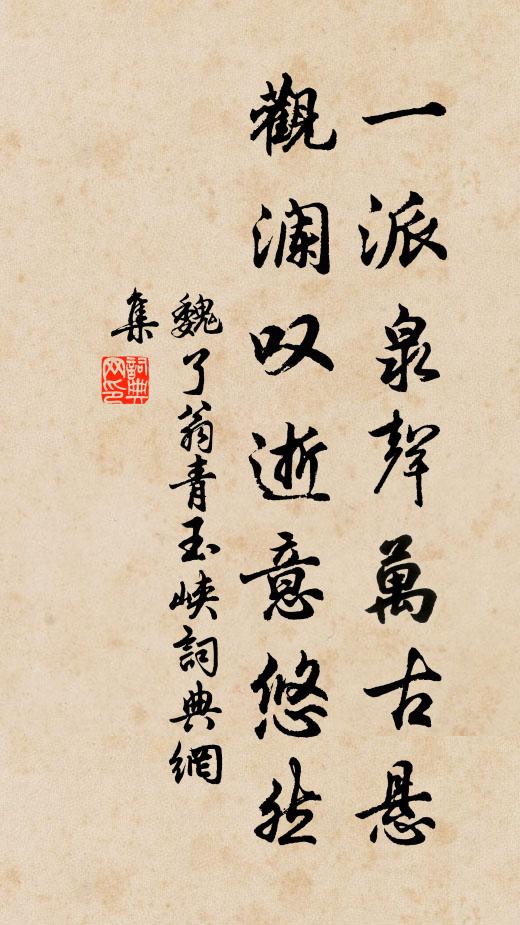 一派泉聲萬古悬
觀澜叹逝意悠然
魏了翁青玉峡詞典網
集
詞典網印